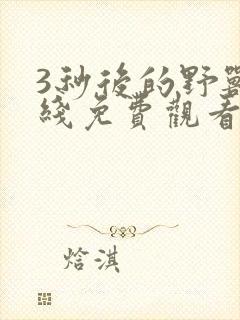 3秒後的野獸
綫免費觀看
焓淇